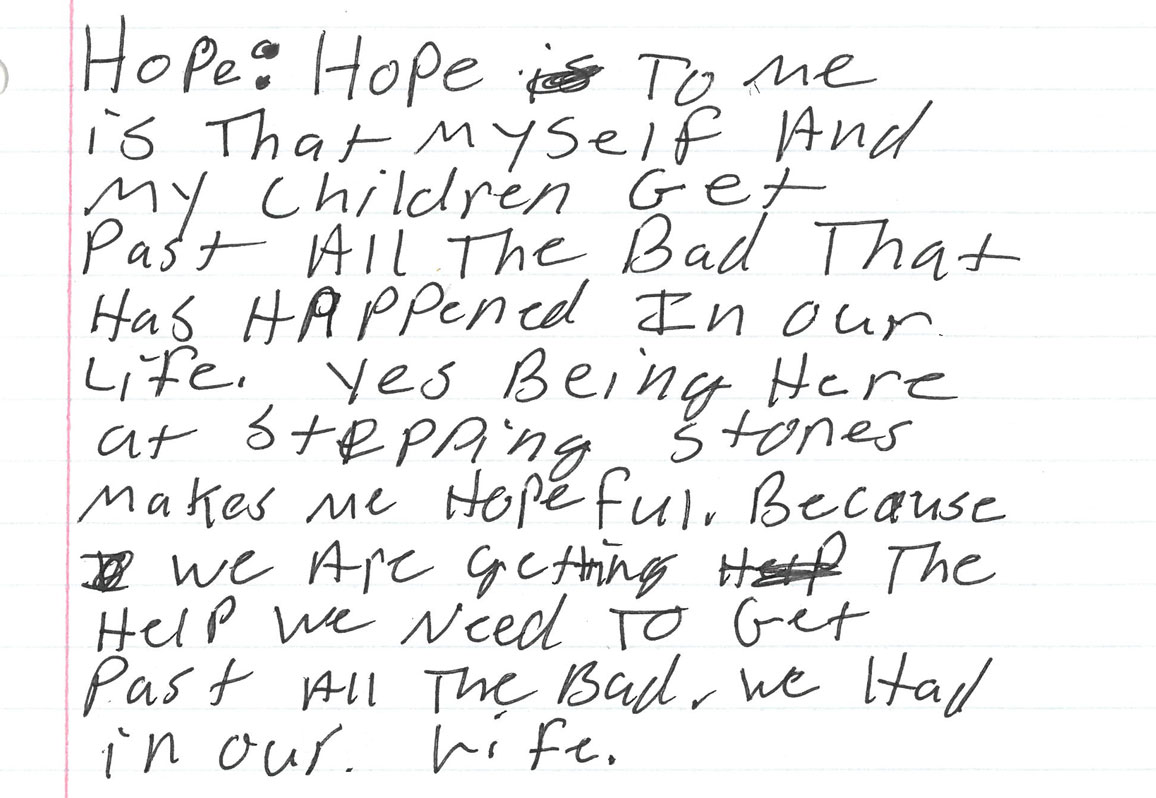 Hope: Hope To me
is That myself And
my children Get
Past All The Bad That
Has HAppened In our
Life. Yes Being Here
at Stepping Stones
makes me Hopeful. Because
we Are getting The
Help we Need To Get
Past All The Bad. we Had
in our. Life.